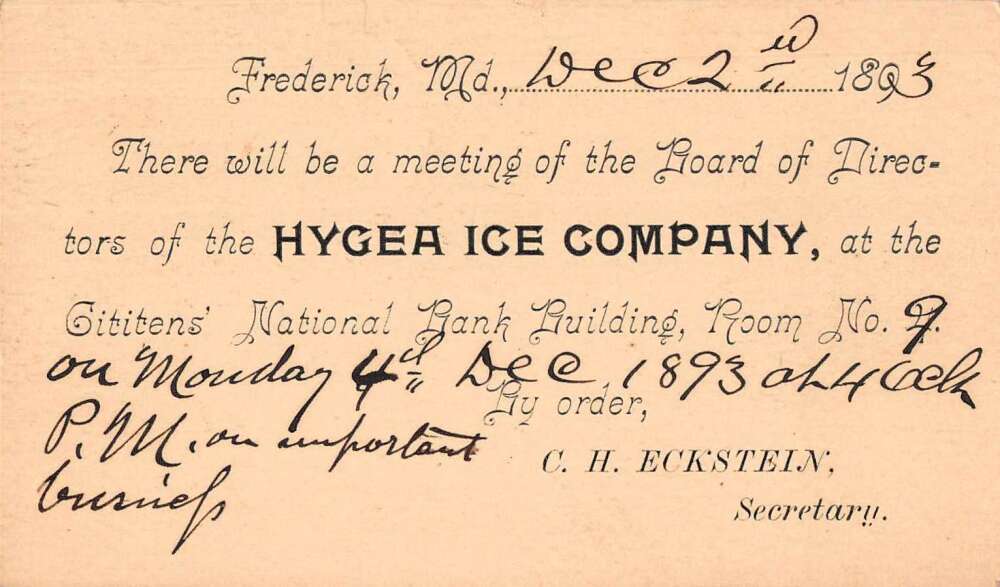 Frederick, Md., Dec 2nd 1893
There will be a meeting of the Board of Direc-
tors of the HYGEA ICE COMPANY, at the
Cititens' National Bank Building, Room No. 9.
on Monday 4th Dec 1893 at 4 Oclk
By order,
P.M. on important
C. H. ECKSTEIN,
business
Secretary.